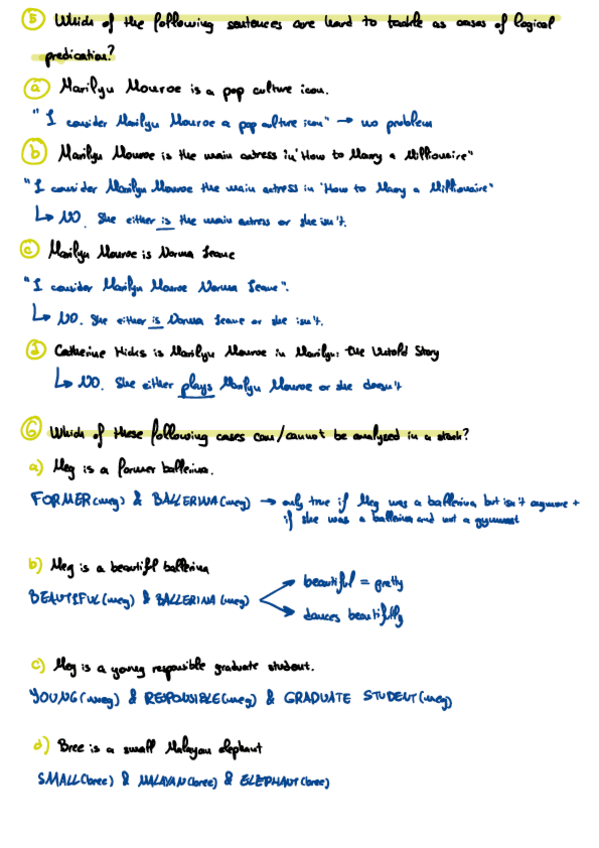 5 Which of the following sentences are hard to tackle as cases of logical
predication?
a Marilyn Monroe is a pop culture icon.
"I consider Marilyn Monroe a pop culture icon" → no problem
b Marilyn Monroe is the main actress in 'How to Marry a Millionaire"
"I consider Marilyn Monroe the main actress in 'How to Marry a Millionaire"
↳ NO. She either is the main actress or she isn't.
c Marilyn Monroe is Norma Jeane
"I consider Marilyn Monroe Norma Jeane".
↳ NO. She either is Norma Jeane or she isn't.
d Catherine Hicks is Marilyn Monroe in Marilyn: the Untold Story
↳ NO. She either plays Marilyn Monroe or she doesn't
6 Which of these following cases can/cannot be analyzed in a stack?
a) Meg is a former ballerina.
FORMER(meg) & BALLERINA(meg) → only true if Meg was a ballerina, but isn't anymore +
if she was a ballerina and not a gymnast
b) Meg is a beautiful ballerina
beautiful = pretty
BEAUTIFUL(meg) & BALLERINA(meg)
dances beautifully
c) Meg is a young responsible graduate student.
YOUNG(meg) & RESPONSIBLE(meg) & GRADUATE STUDENT(meg)
d) Bree is a small Malayan elephant
SMALL(bree) & MALAYAN(bree) & ELEPHANT(bree)